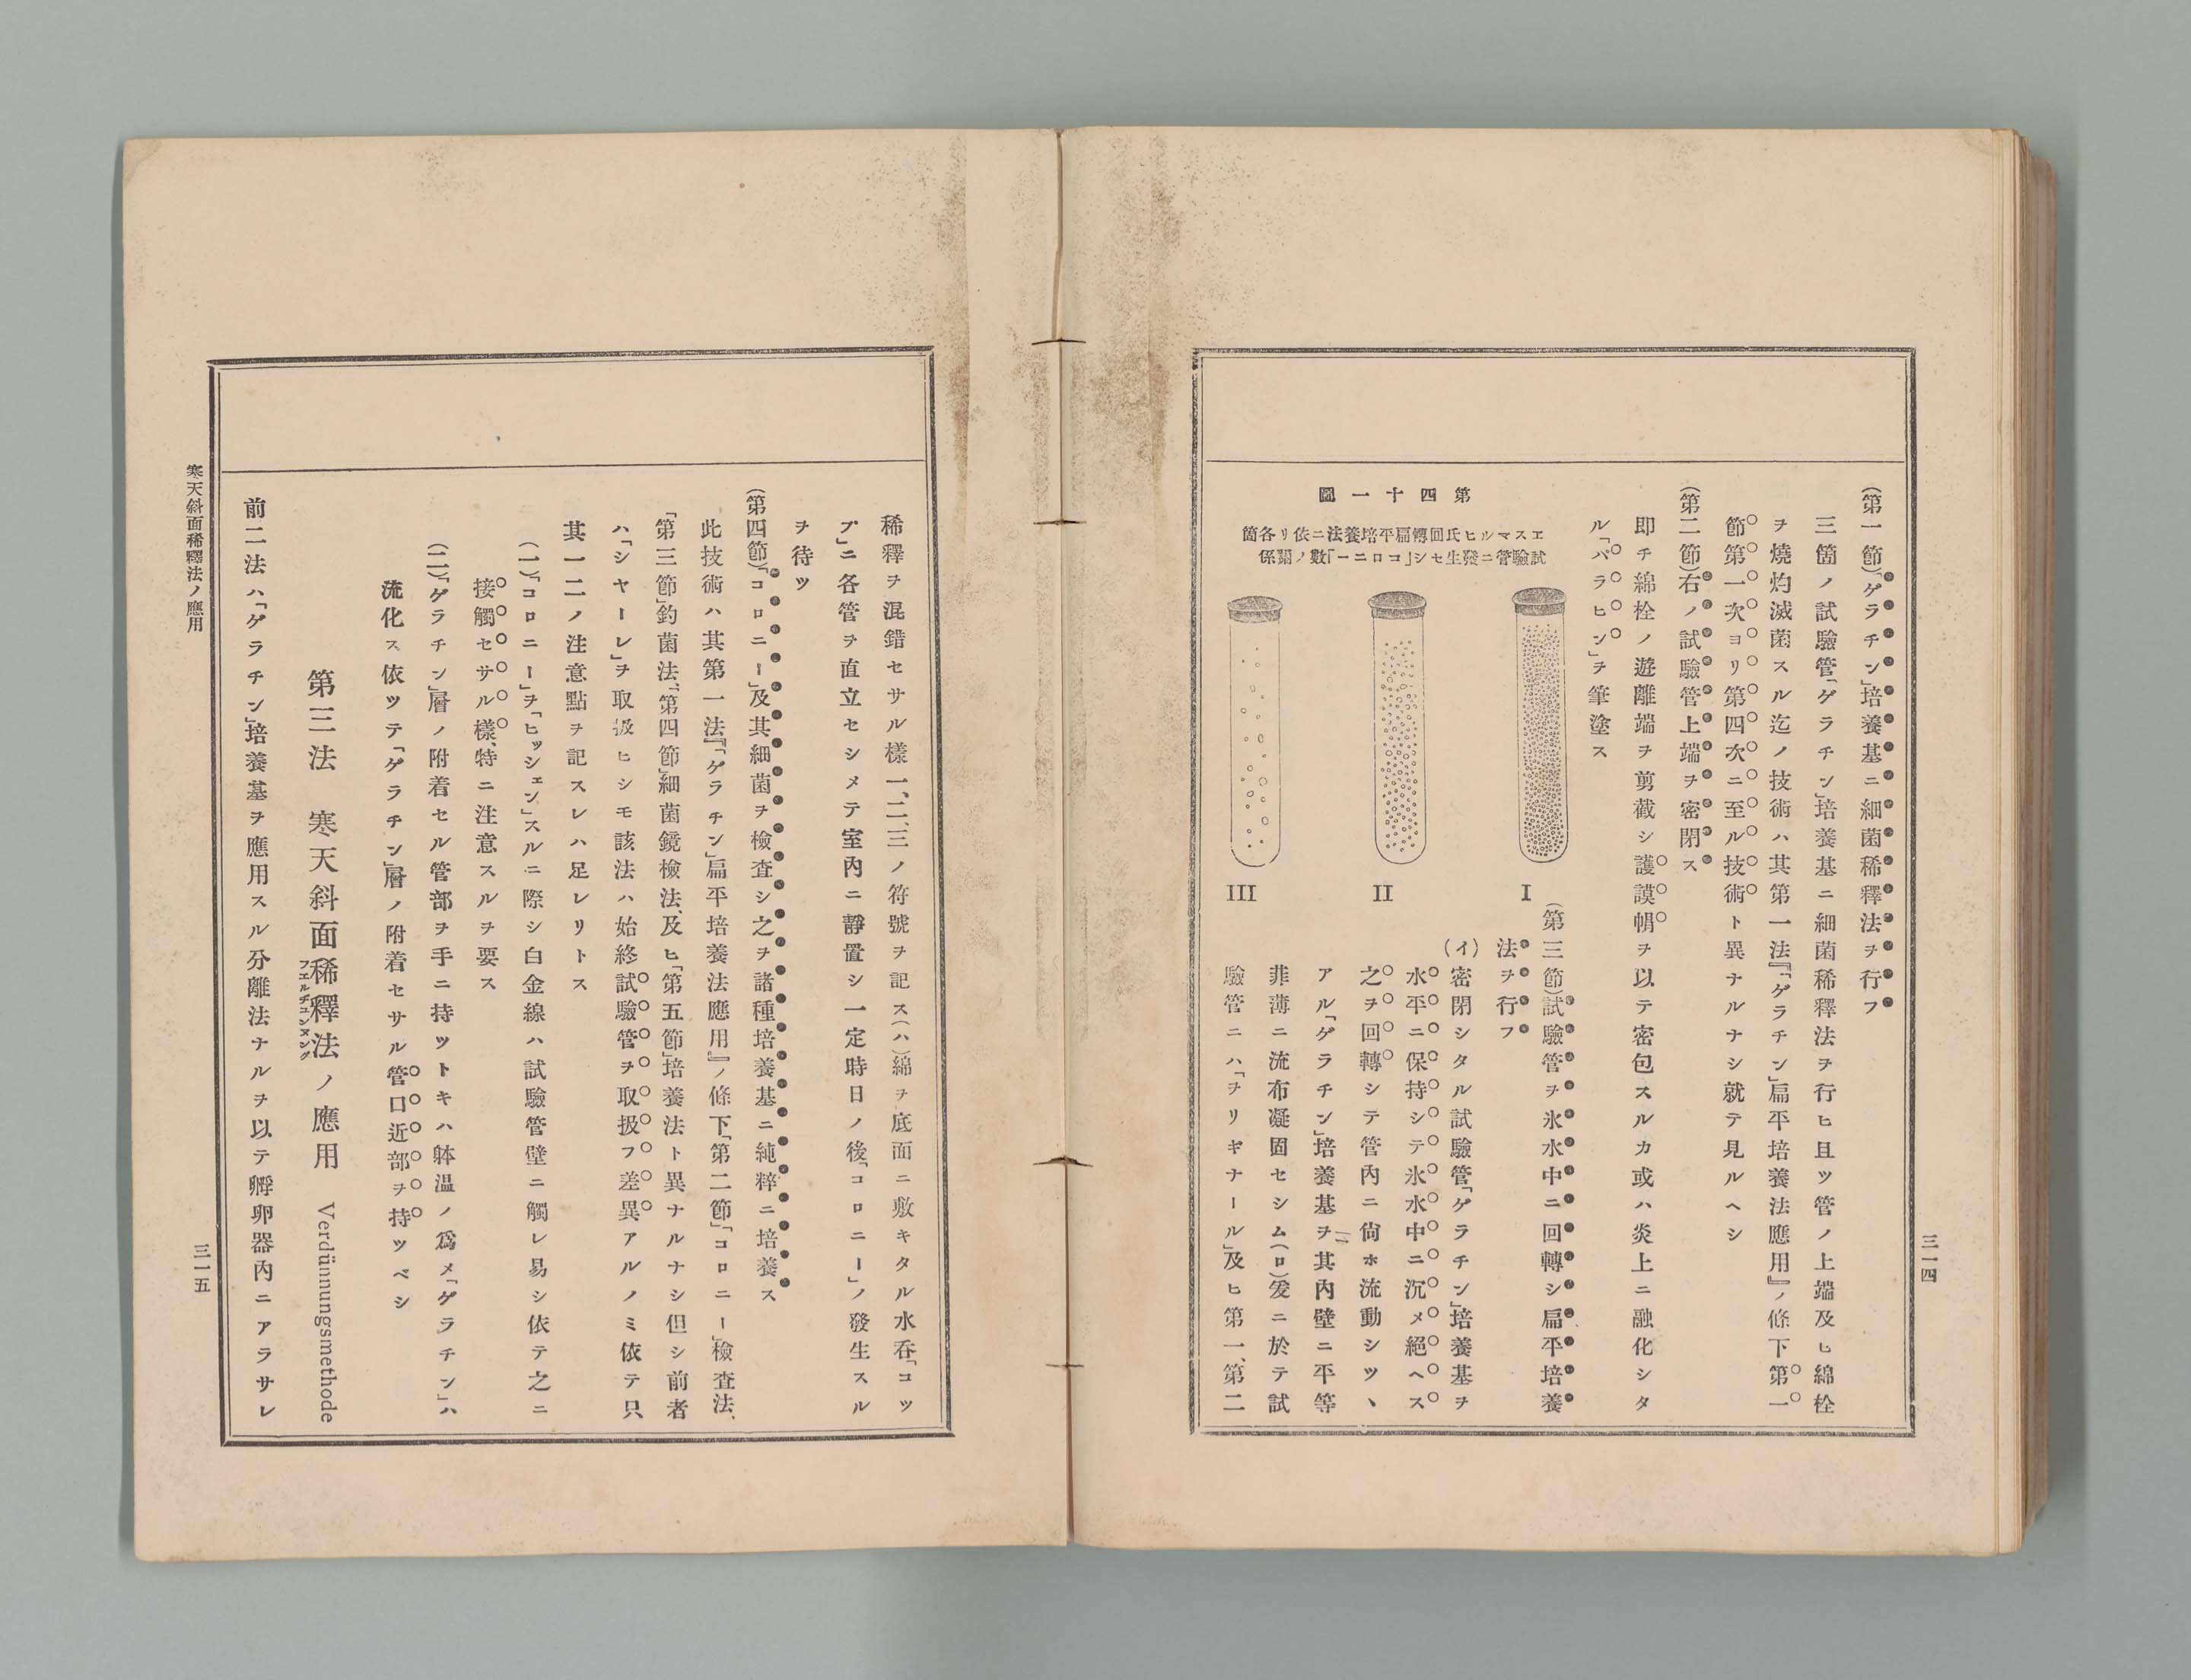 三一四
(第一節)「ゲラチン」培養基ニ細菌稀釋法ヲ行フ
三箇ノ試驗管「ゲラチン」培養基ニ細菌稀釋法ヲ行ヒ且ツ管ノ上端及ヒ綿栓
ヲ燒灼滅菌スル迄ノ技術ハ其第一法『「ゲラチン」扁平培養法應用』ノ條下第一
節第一次ヨリ第四次ニ至ル技術ト異ナルナシ就テ見ルヘシ
(第二節)右ノ試驗管上端ヲ密閉ス
即チ綿栓ノ遊離端ヲ剪截シ護謨帽ヲ以テ密包スルカ或ハ炎上ニ融化シタ
ル「パラヒン」ヲ筆塗ス
第四十一圖
エスマルヒ氏回轉扁平培養法ニ依リ各箇
試驗管ニ發生セシ「コロニー」數ノ關係
I
II
III
(第三節)試驗管ヲ氷水中ニ回轉シ扁平培養
法ヲ行フ
(イ)密閉シタル試驗管「ゲラチン」培養基ヲ
水平ニ保持シテ氷水中ニ沉メ絕ヘス
之ヲ回轉シテ管內ニ尙ホ流動シツヽ
アル「ゲラチン」培養基ヲ其內壁ニ平等
菲薄ニ流布凝固セシム(ロ)爰ニ於テ試
驗管ニハ「ヲリギナール」及ヒ第一、第二
稀釋ヲ混錯セサル樣一、二、三ノ符號ヲ記ス(ハ)綿ヲ底面ニ敷キタル水呑「コツ
プ」ニ各管ヲ直立セシメテ室內ニ靜置シ一定時日ノ後「コロニー」ノ發生スル
ヲ待ツ
(第四節)「コロニー」及其細菌ヲ檢査シ之ヲ諸種培養基ニ純粹ニ培養ス
此技術ハ其第一法『「ゲラチン」扁平培養法應用』ノ條下「第二節」「コロニー」檢査法、
「第三節」釣菌法、「第四節」細菌鏡檢法、及ヒ「第五節」培養法ト異ナルナシ但シ前者
ハ「シヤーレ」ヲ取扱ヒシモ該法ハ始終試驗管ヲ取扱フ差異アルノミ依テ只
其一二ノ注意點ヲ記スレハ足レリトス
(一)「コロニー」ヲ「ヒッシェン」スルニ際シ白金線ハ試驗管壁ニ觸レ易シ依テ之ニ
接觸セサル樣、特ニ注意スルヲ要ス
(二)「ゲラチン」層ノ附着セル管部ヲ手ニ持ツトキハ躰温ノ爲メ「ゲラチン」ハ
流化ス依ツテ「ゲラチン」層ノ附着セサル管口近部ヲ持ツベシ
第三法 寒天斜面稀釋法ノ應用 Verdünnungsmethode
フエルヂユンヌング
前二法ハ「ゲラチン」培養基ヲ應用スル分離法ナルヲ以テ孵卵器內ニアラサレ
寒天斜面稀釋法ノ應用
三一五